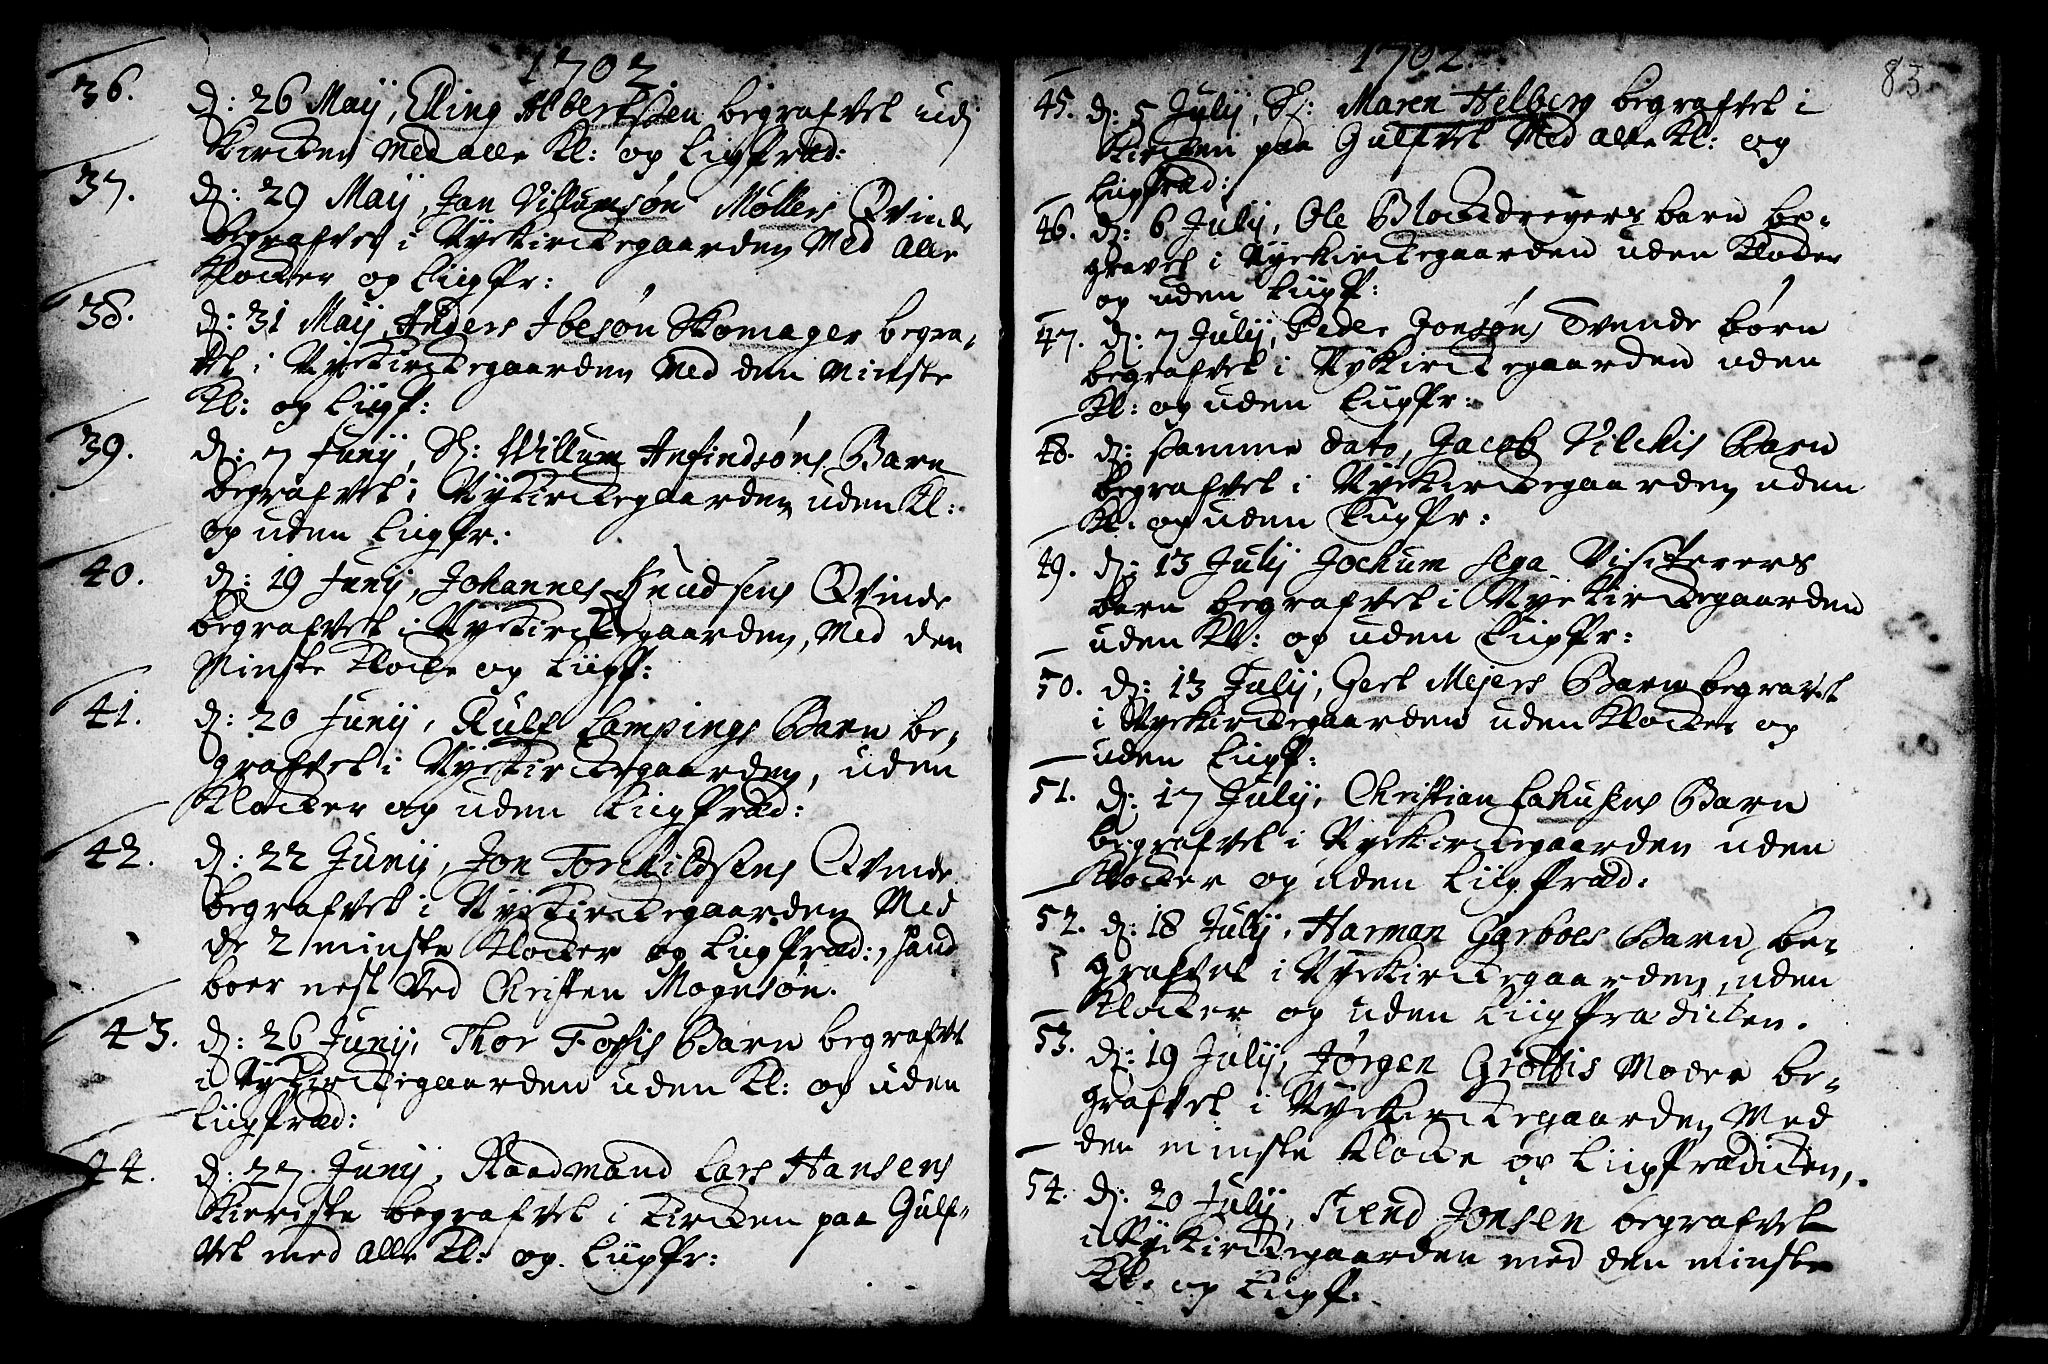 1702.
36. d: 26 Maij, Elling Albertsøn begrafvet udj
Kircken Med alle Kl: og Liigpræd:
37. d: 29 Maij, Jan Villumsøn Møllers Qvinde
begrafvet i Nyekirckegaarden Med alle
Klocker og Liigpr:
38. d: 31 Maij, Anders Ibesøn Skomager begra-
vet i Nyekirckegaarden Med den Minste
Kl: og Liigp:
39. d: 7 Junij, Sr: Willum Anfindsøns Barn
begrafvet i Nykirckegaarden uden Kl:
og uden Liigpr:
40. d: 19 Junij, Johannes Knudsens Qvinde
begrafvet i Nyekirckegaarden, Med den
Minste Klocke og Liigp:
41. d: 20 Junij, Rulf Lampings Barn be-
grafvet i Nyekirckegaarden, uden
Klocker og uden Liigpræd:
42. d: 22 Junij, Jon Torckildsens Qvinde
begrafvet i Nyekirckegaarden Med
de 2 minste Klocker og Liigpræd:, hand
boer nest Ved Christen Mognsøn.
43. d: 26 Junij, Thor Fosses Barn begrafvet
i Nykirckegaarden uden Kl: og uden
Liigpræd:
44. d: 27 Junij, Raadmand Lars Hansens
Kieriste begrafvet i Kircken paa Gulf-
vet med alle Kl: og Liigpr:
1702.
83
45. d: 5 Julij, Sr: Maren Helberg begrafvet i
Kircken paa Gulfvet Med alle Kl: og
Liigpræd:
46. d: 6 Julij, Ole Blockdreyers barn be-
gravet i Nyekirckegaarden uden Klocker
og uden Liigp:
47. d: 7 Julij, Peder Jonsøns Tvende børn
begrafvet i Nykirckegaarden uden
Kl: og uden Liigpr:
48. d: samme dato, Jacob Vilckis Barn
begrafvet i Nyekirckegaarden uden
Kl: og uden Liigpr:
49. d: 13 Julij Jochum Visiterers
barn begrafvet i Nyekirckegaarden
uden Kl: og uden Liigpr:
50. d: 13 Julij, Gert Mejers Barn begravet
i Nyekirckegaarden uden Klocker og
uden Liigp:
51. d: 17 Julij, Christian Lahusens Barn
begrafvet i Nyekirckegaarden uden
Klocker og uden Liigpræd:
52. d: 18 Julij, Harman Garboes Barn be-
grafvet i Nyekirckegaarden, uden
Klocker og uden Liigprædicken.
53. d: 19 Julij, Jørgen Grottis Moder be-
grafvet i Nyekirckegaarden Med
den minste Klocke og Liigprædicken,.
54. d: 20 Julij, Siend Jonsen begrafvet
i Nyekirckegaarden med den minste
Kl: og Liigp: